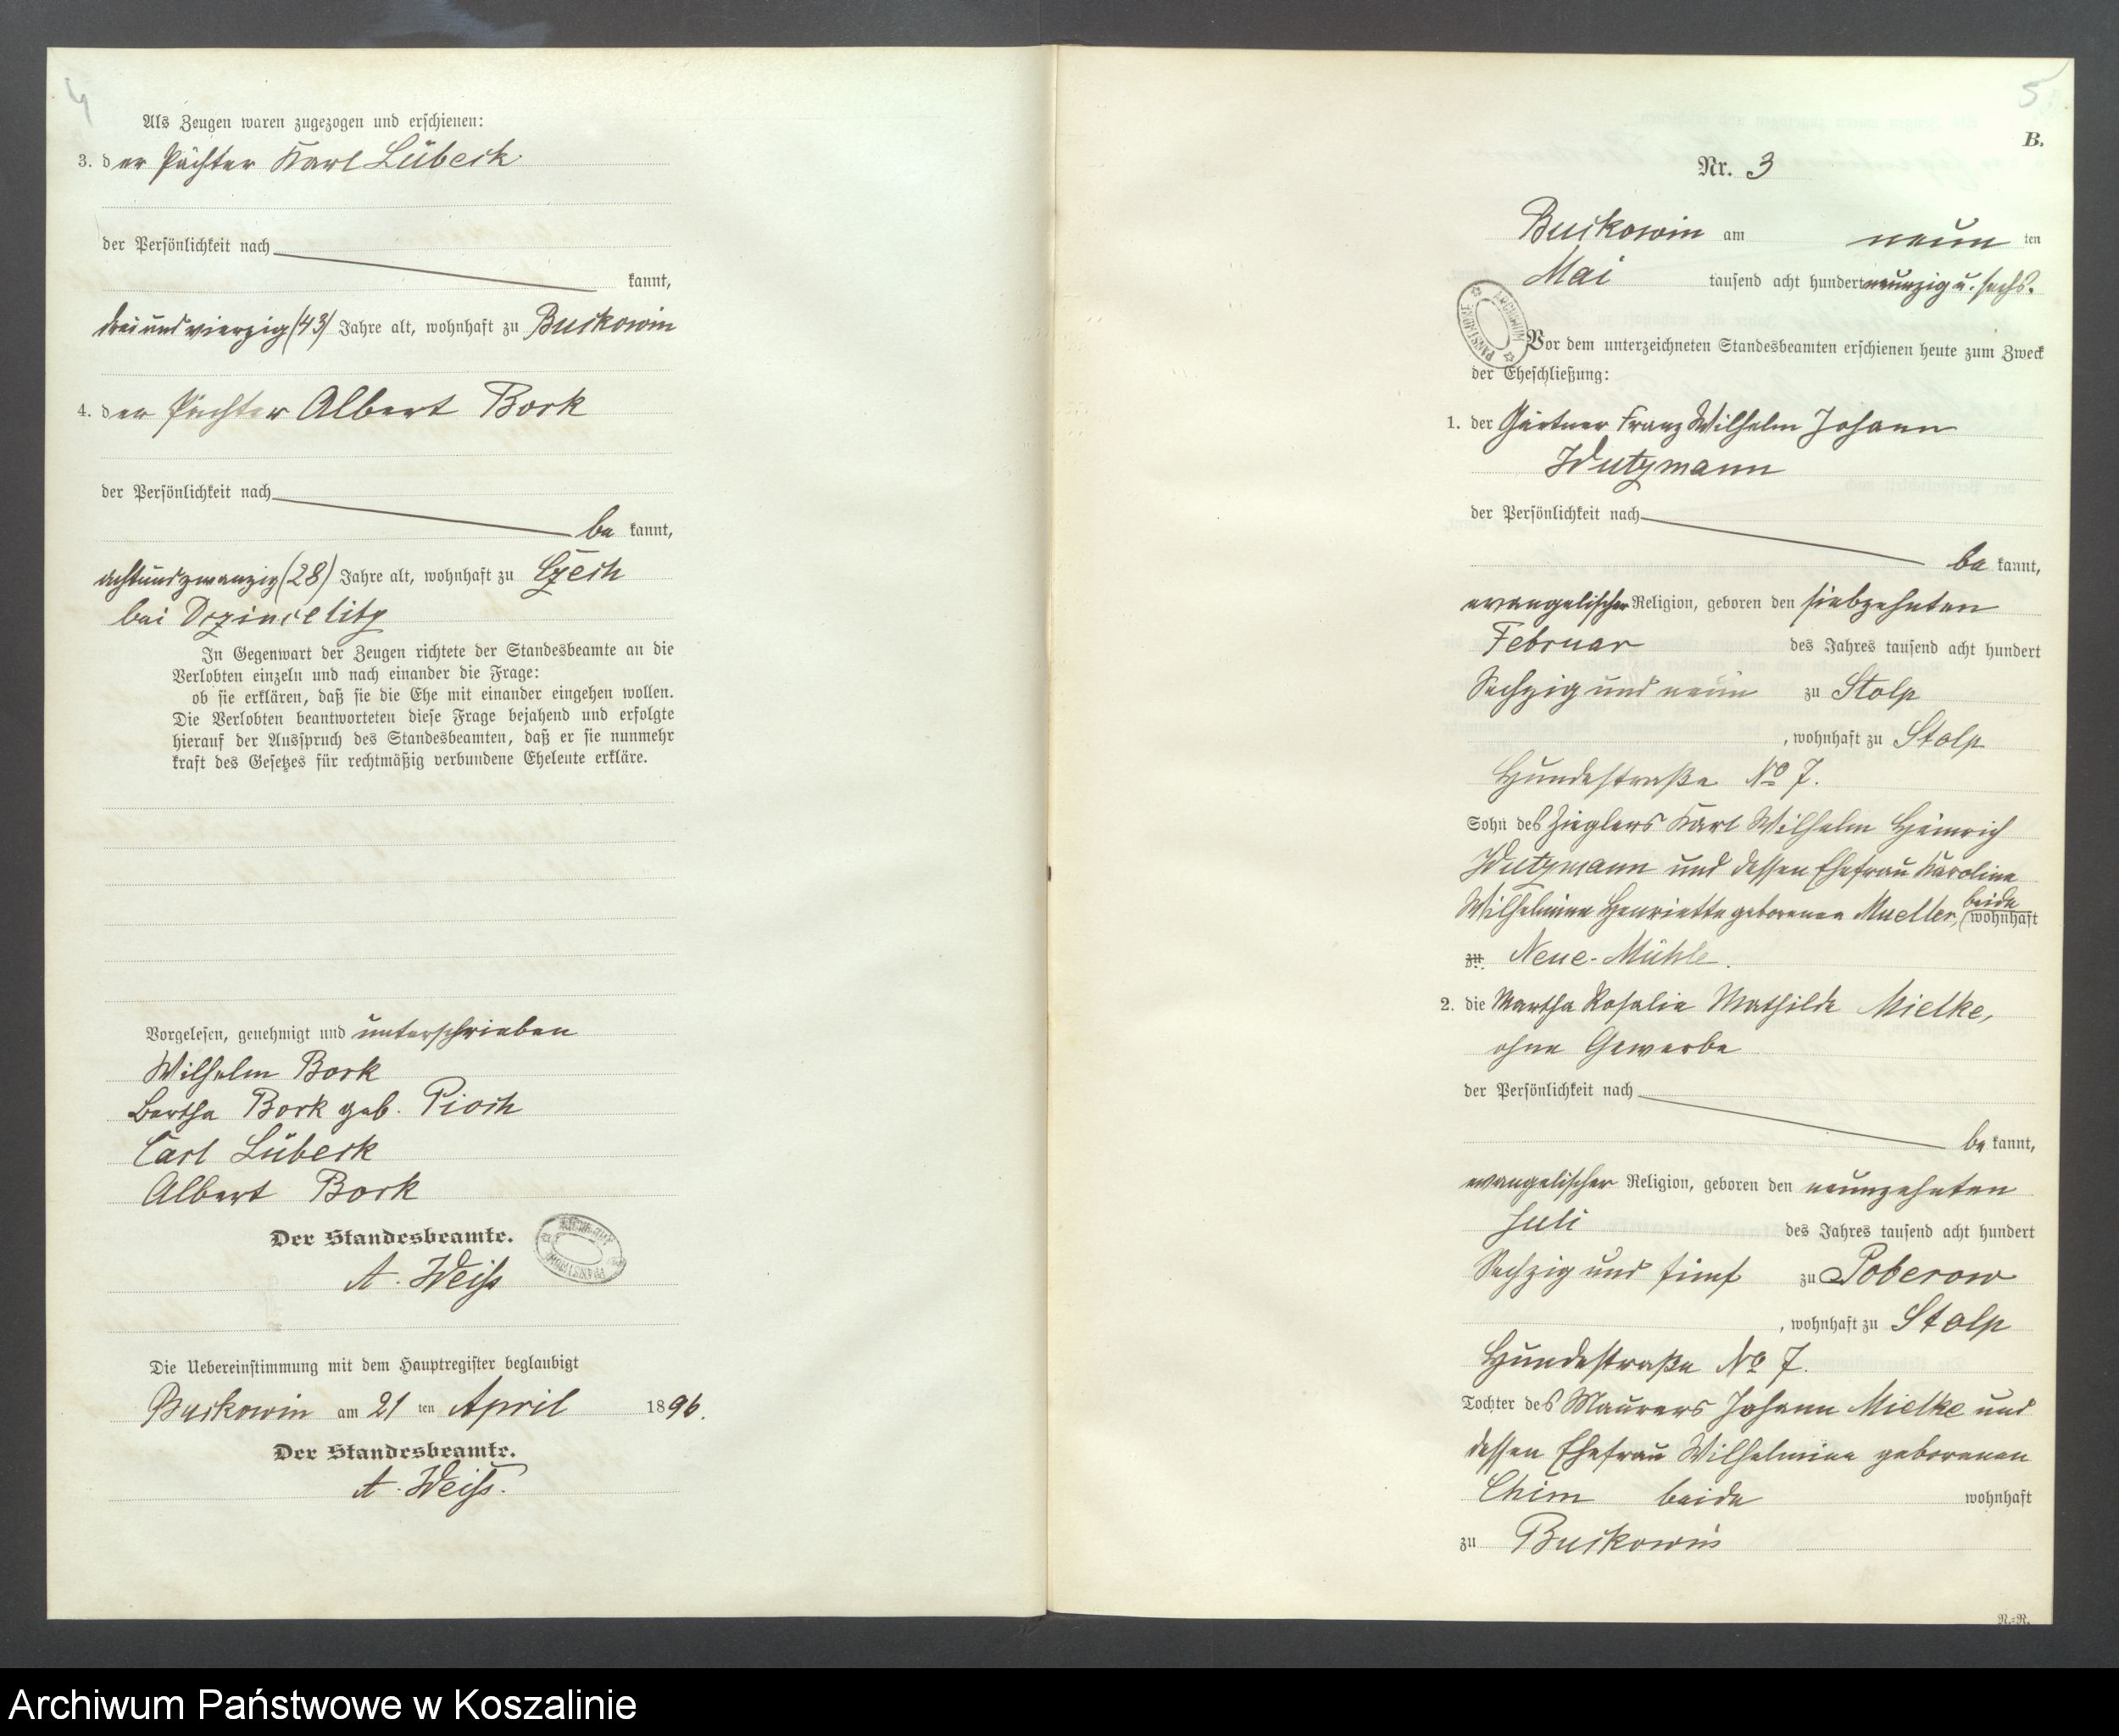 4
Als Zeugen waren zugezogen und erschienen:
3. der Pächter Karl Lübeck
der Persönlichkeit nach
kannt,
drei und vierzig (43) Jahre alt, wohnhaft zu Buckowin
4. der Pächter Albert Bork
der Persönlichkeit nach
be kannt,
achtundzwanzig (28) Jahre alt, wohnhaft zu Czech
bei
In Gegenwart der Zeugen richtete der Standesbeamte an die
Verlobten einzeln und nach einander die Frage:
ob sie erklären, daß sie die Ehe mit einander eingehen wollen.
Die Verlobten beantworteten diese Frage bejahend und erfolgte
hierauf der Ausspruch des Standesbeamten, daß er sie nunmehr
kraft des Gesetzes für rechtmäßig verbundene Eheleute erkläre.
Vorgelesen, genehmigt und unterschrieben
Wilhelm Bork
Bertha Bork geb. Pioch
Carl Lübeck
Albert Bork
Der Standesbeamte.
A. Weiß
Die Uebereinstimmung mit dem Hauptregister beglaubigt
Buckowin am 21 ten April 1896.
Der Standesbeamte.
A. Weiß.
5
B.
Nr. 3
Buckowin am neun ten
Mai tausend acht hundert neunzig u. sechs.
ARCHIWUM PAŃSTWOWE
Vor dem unterzeichneten Standesbeamten erschienen heute zum Zweck
der Eheschließung:
1. der Gärtner Franz Wilhelm Johann
Wutzmann
der Persönlichkeit nach
be kannt,
evangelischer Religion, geboren den siebzehnten
Februar des Jahres tausend acht hundert
Sechzig und neun zu Stolp
, wohnhaft zu Stolp
Hundestraße No 7.
Sohn des Zieglers Karl Wilhelm Heinrich
Wutzmann und dessen Ehefrau Karoline
Wilhelmine Henriette geborenen Mueller, beide wohnhaft
zu Neue-Mühle.
2. die Martha Rosalie Mathilde Mielke,
ohne Gewerbe
der Persönlichkeit nach
be kannt,
evangelischer Religion, geboren den neunzehnten
Juli des Jahres tausend acht hundert
Sechzig und fünf zu Poberow
, wohnhaft zu Stolp
Hundestraße No 7.
Tochter des Maurers Johann Mielke und
dessen Ehefrau Wilhelmine geborenen
Chim beide wohnhaft
zu Buckowin
R.-R.
Archiwum Państwowe w Koszalinie